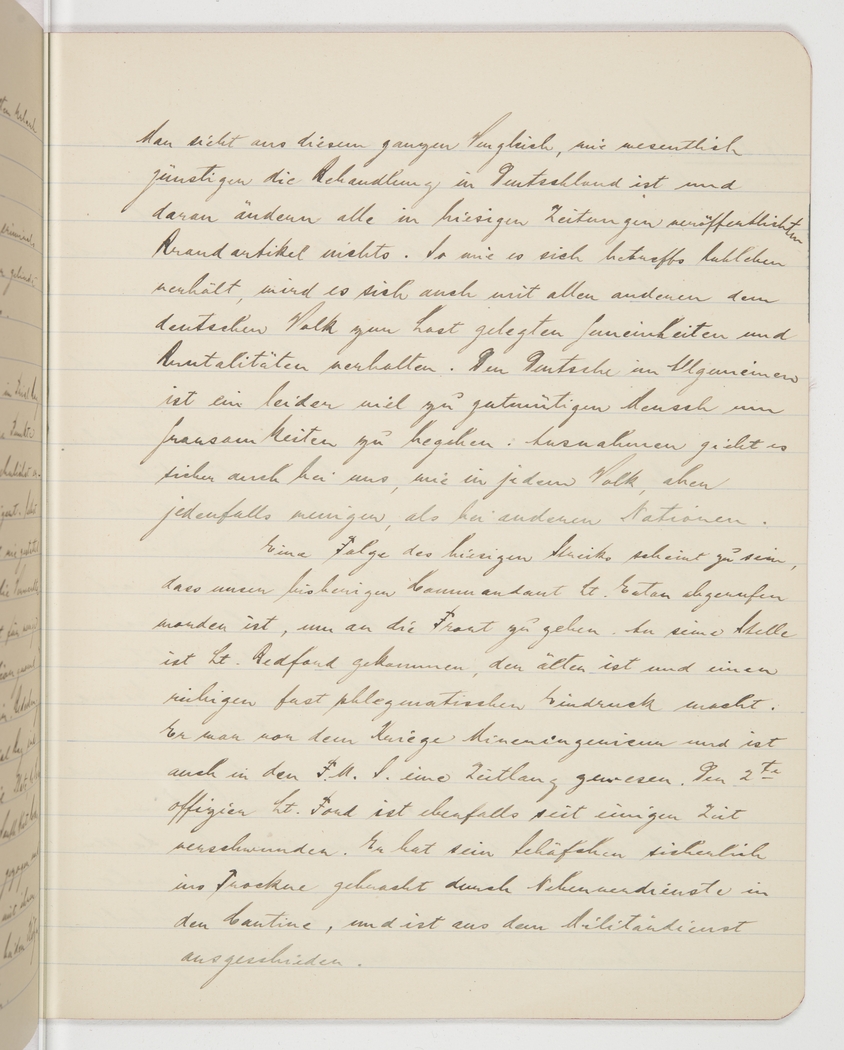 Man sieht aus diesem ganzen Vergleich, wie wesentlich
günstiger die Behandlung in Deutschland ist und
daran ändern alle in hiesigen Zeitungen veröffentlichten
Brandartikel nichts. So wie es sich betreffs
verhält, wird es sich auch mit allen anderen dem
deutschen Volk zur Last gelegten Gemeinheiten und
Brutalitäten verhalten. Der Deutsche im Algemeinen
ist ein leider viel zu gutmütiger Mensch um
Grausamkeiten zu begehen: Ausnahmen giebt es
sicher auch bei uns, wie in jedem Volk, aber
jedenfalls weniger, als bei anderen Nationen.
Eine Folge des hiesigen Streiks scheint zu sein,
dass unser bisheriger Commandant Lt. Eaton abgerufen
worden ist, um an die Front zu gehen. An seine Stelle
ist Lt. Bedford gekommen, der älter ist und einen
ruhigen fast phlegmatischen Eindruck macht.
Er war vor dem Kriege Mineningenieur und ist
auch in den F.M.S. eine Zeitlang gewesen. Der 2te
offizier Lt. Ford ist ebenfalls seit einiger Zeit
verschwunden. Er hat sein Schäfchen sicherlich
ins Trockne gebracht durch Nebenverdienste in
der Cantine, und ist aus dem Militärdienst
ausgeschieden.